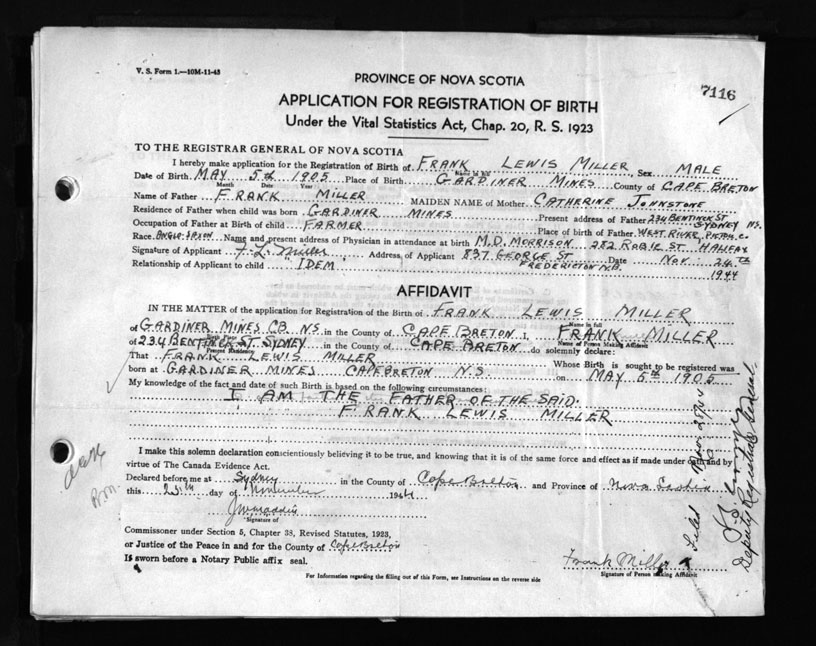 V. S. Form 1.—10M-11-43
7116
PROVINCE OF NOVA SCOTIA
APPLICATION FOR REGISTRATION OF BIRTH
Under the Vital Statistics Act, Chap. 20, R. S. 1923
TO THE REGISTRAR GENERAL OF NOVA SCOTIA
I hereby make application for the Registration of Birth of FRANK LEWIS MILLER, Sex MALE
Name in full
Date of Birth MAY 5th 1905 Place of Birth GARDINER MINES County of CAPE BRETON
Month Date Year
Name of Father FRANK MILLER MAIDEN NAME of Mother CATHERINE JOHNSTONE
Residence of Father when child was born GARDINER MINES Present address of Father 234 BENTINCK ST SYDNEY NS.
Occupation of Father at Birth of child FARMER Place of birth of Father WEST RIVER, PICTOU, C.
Race ANGLO-SAXON Name and present address of Physician in attendance at birth M.D. MORRISON 282 ROBIE ST. HALIFAX
Signature of Applicant F. L. Miller Address of Applicant 837 GEORGE ST FREDERICTON N.B. Date Nov. 24th 1944
Relationship of Applicant to child "IDEM"
AFFIDAVIT
IN THE MATTER of the application for Registration of the Birth of FRANK LEWIS MILLER
Name in full
of GARDINER MINES CB NS in the County of CAPE BRETON I, FRANK MILLER
Name of Person Making Affidavit
of 234 BENTINCK ST. SYDNEY in the County of CAPE BRETON do solemnly declare:
Present Residence
That FRANK LEWIS MILLER Whose Birth is sought to be registered was
born at GARDINER MINES CAPE BRETON N.S on MAY 5th 1905
My knowledge of the fact and date of such Birth is based on the following circumstances:
I AM THE FATHER OF THE SAID.
FRANK LEWIS MILLER
I make this solemn declaration conscientiously believing it to be true, and knowing that it is of the same force and effect as if made under oath and by
virtue of The Canada Evidence Act.
Declared before me at Sydney in the County of Cape Breton and Province of Nova Scotia
this day of November 1944
Signature of
Commissoner under Section 5, Chapter 38, Revised Statutes, 1923,
or Justice of the Peace in and for the County of Cape Breton
If sworn before a Notary Public affix seal.
Frank Miller
Signature of Person Making Affidavit
For Information regarding the filling out of this Form, see Instructions on the reverse side
Filed Nov.
Deputy Registrar General.